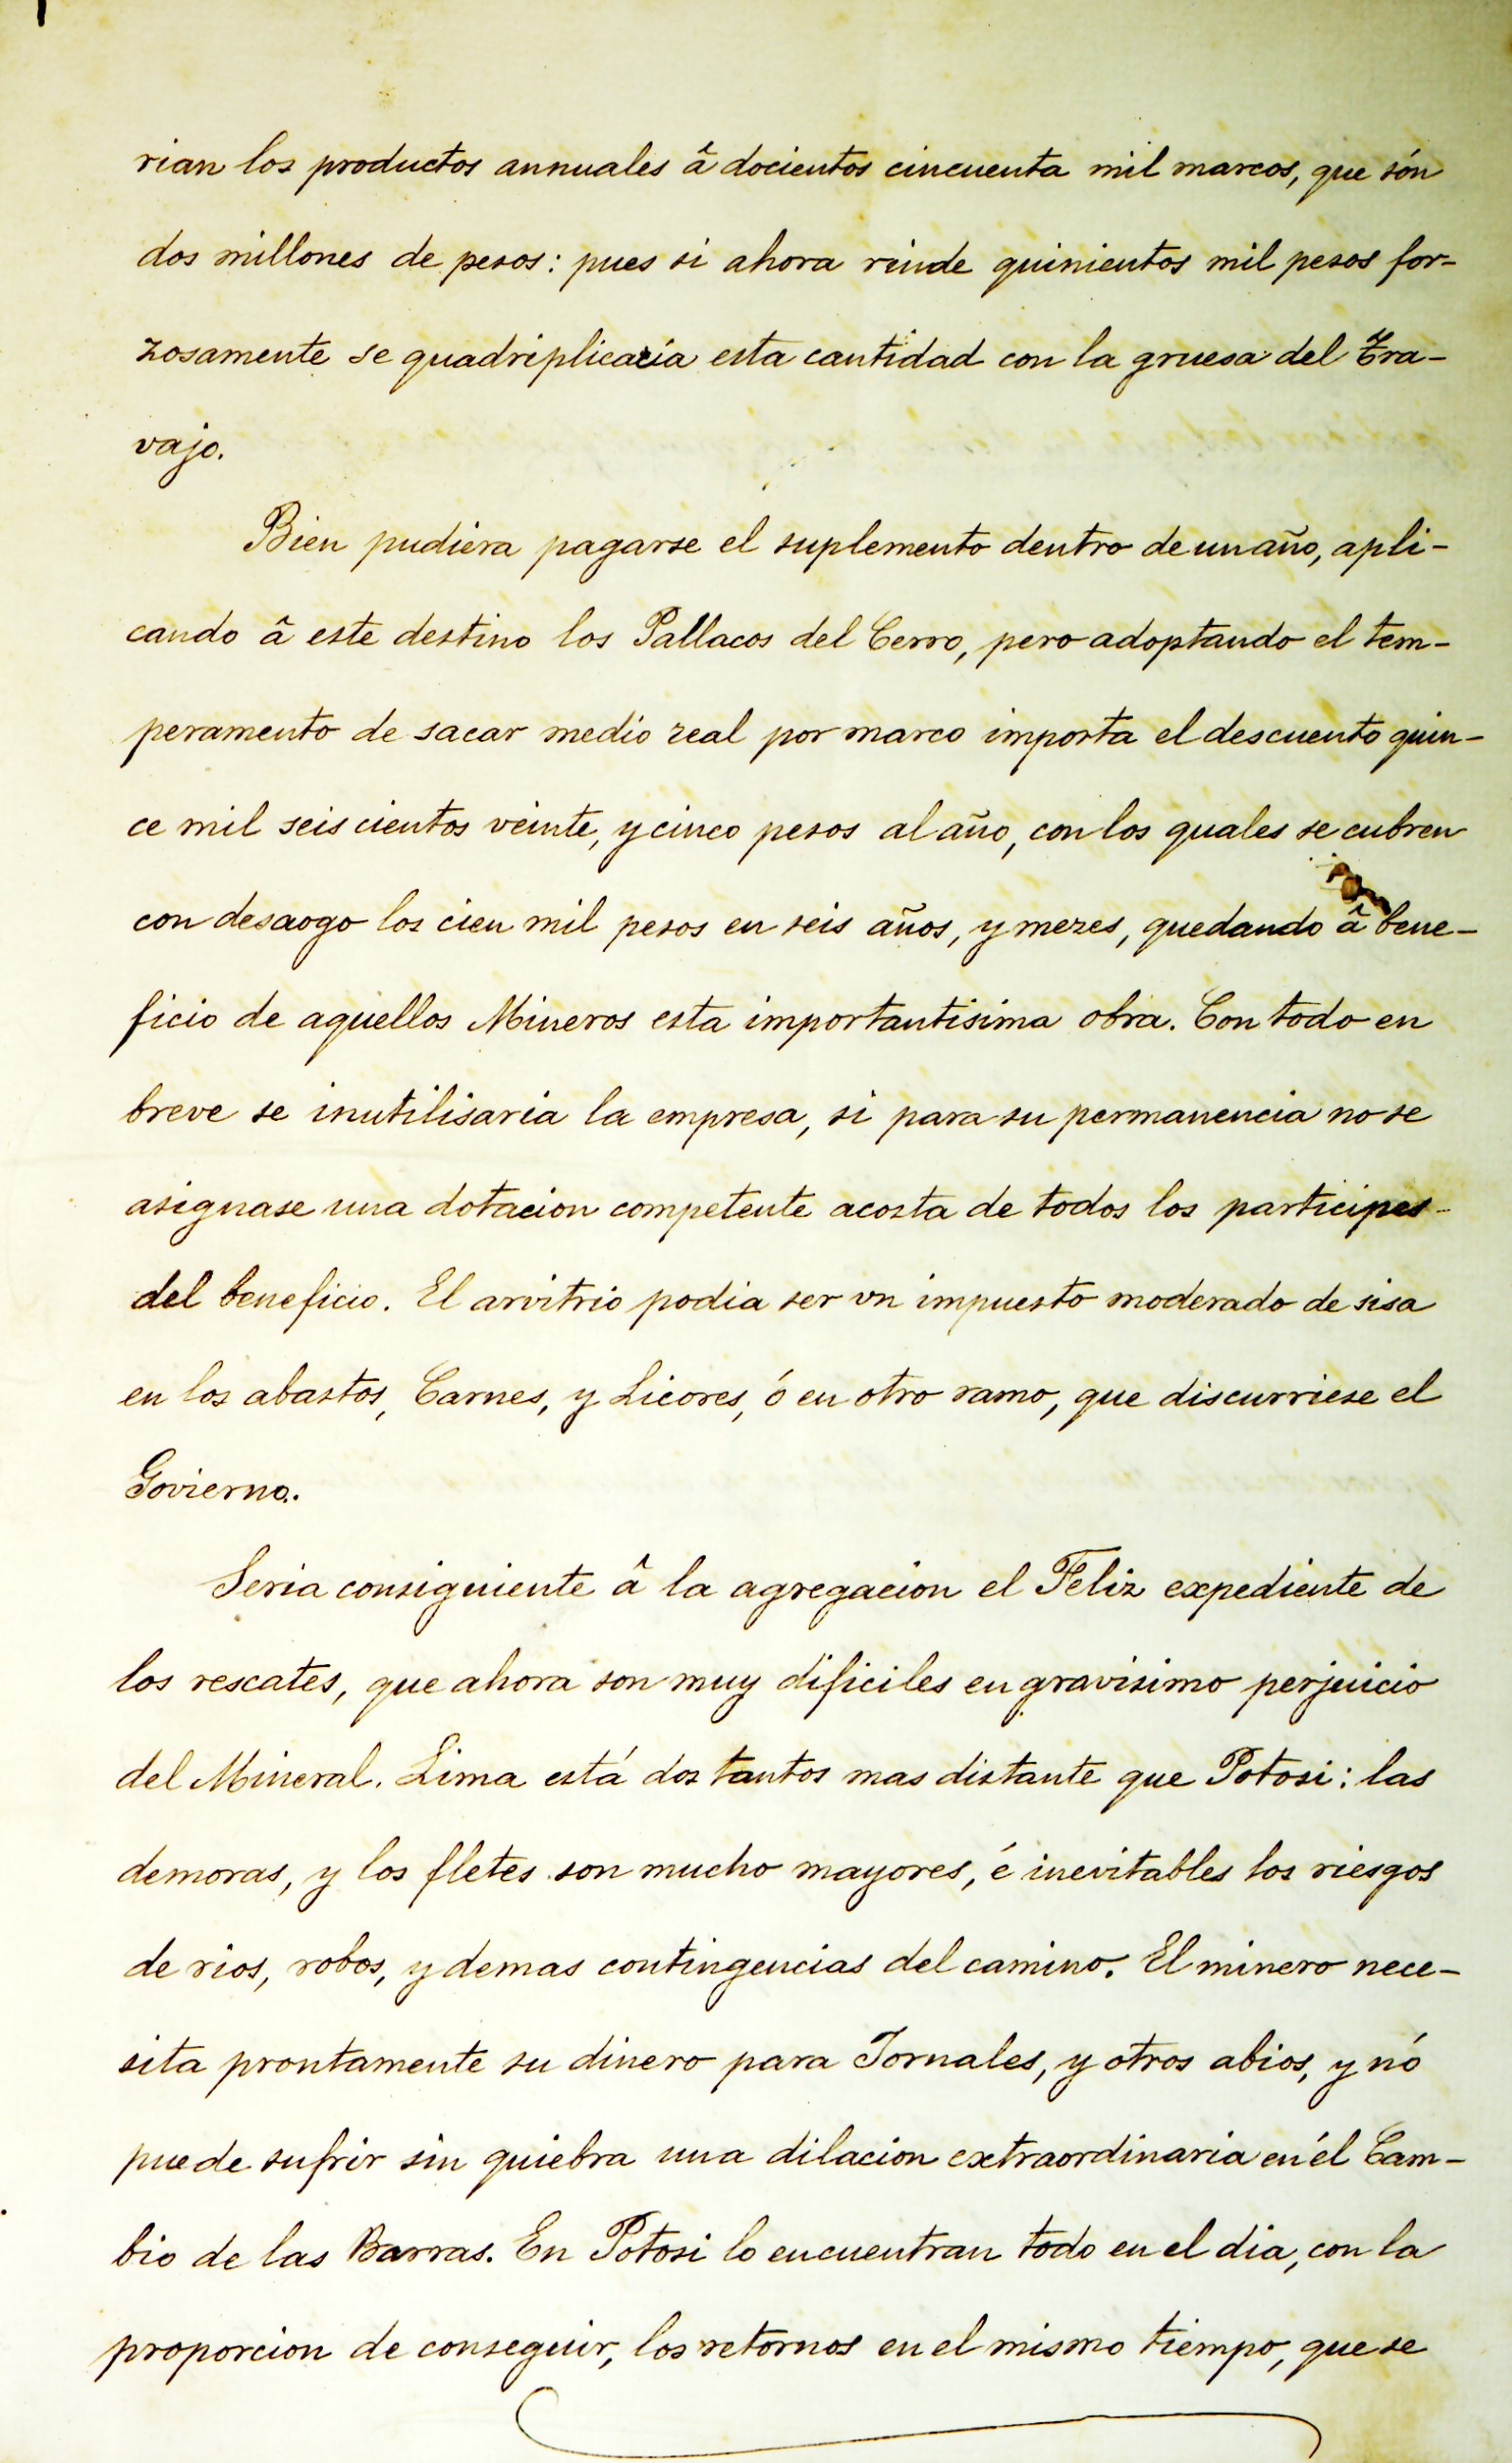 rian los productos annuales â docientos cincuenta mil marcos, que són
dos millones de pesos: pues si ahora rinde quinientos mil pesos for-
zosamente se quadriplicaría esta cantidad con la gruesa del Tra-
vajo.
Bien pudiera pagarse el suplemento dentro de un año, apli-
cando â este destino los Pallacos del Cerro, pero adoptando el tem-
peramento de sacar medio real por marco importa el descuento quin-
ce mil seis cientos veinte, y cinco pesos al año, con los quales se cubren
con desaogo los cien mil pesos en seis años, y mezes, quedando â bene-
ficio de aquellos Mineros esta importantisima obra. Con todo en
breve se inutilisaria la empresa, si para su permanencia no se
asignase una dotacion competente acosta de todos los participes
del beneficio. El arvitrio podia ser vn impuesto moderado de sisa
en los abastos, Carnes, y Licores, ó en otro ramo, que discurriese el
Govierno.
Seria consiguiente â la agregacion el Feliz expediente de
los rescates, que ahora son muy dificiles en gravisimo perjuicio
del Mineral. Lima está dos tantos mas distante que Potosi: las
demoras, y los fletes son mucho mayores, é inevitables los riesgos
de rios, robos, y demas contingencias del camino. El minero nece-
sita prontamente su dinero para Jornales, y otros abios, y nó
puede sufrir sin quiebra una dilacion extraordinaria en él Cam-
bio de las Barras. En Potosi lo encuentran todo en el dia, con la
proporcion de conseguir, los retornos en el mismo tiempo, que se